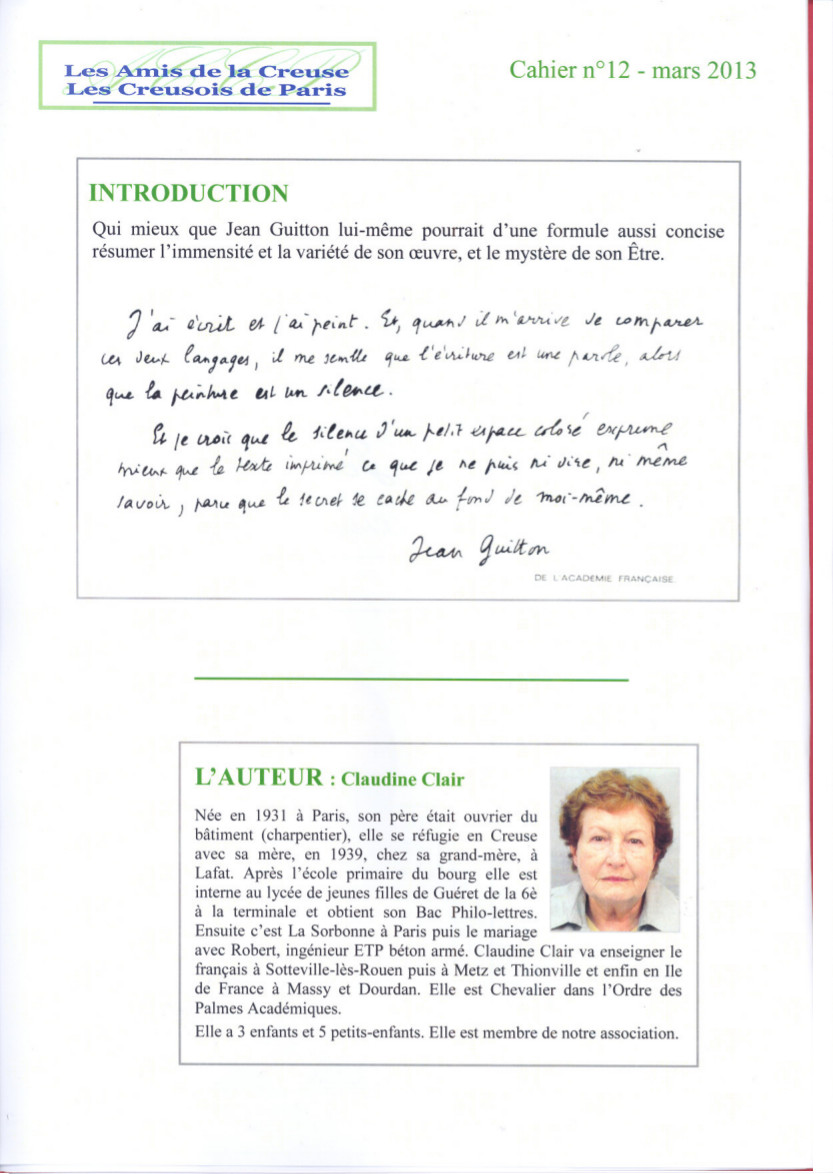 Les Amis de la Creuse
Les Creusois de Paris
Cahier n°12 - mars 2013
INTRODUCTION
Qui mieux que Jean Guitton lui-même pourrait d’une formule aussi concise
résumer l’immensité et la variété de son œuvre, et le mystère de son Être.
J'ai écrit et j'ai peint. Et, quand il m'arrive de comparer
ces deux langages, il me semble que l'écriture est une parole, alors
que la peinture est un silence.
Et je crois que le silence d'un petit espace coloré exprime
mieux que le texte imprimé ce que je ne puis ni dire, ni même
savoir, parce que le secret se cache au fond de moi-même.
Jean Guitton
DE L'ACADEMIE FRANÇAISE
L’AUTEUR : Claudine Clair
Née en 1931 à Paris, son père était ouvrier du
bâtiment (charpentier), elle se réfugie en Creuse
avec sa mère, en 1939, chez sa grand-mère, à
Lafat. Après l’école primaire du bourg elle est
interne au lycée de jeunes filles de Guéret de la 6è
à la terminale et obtient son Bac Philo-lettres.
Ensuite c’est La Sorbonne à Paris puis le mariage
avec Robert, ingénieur ETP béton armé. Claudine Clair va enseigner le
français à Sotteville-lès-Rouen puis à Metz et Thionville et enfin en Ile
de France à Massy et Dourdan. Elle est Chevalier dans l’Ordre des
Palmes Académiques.
Elle a 3 enfants et 5 petits-enfants. Elle est membre de notre association.